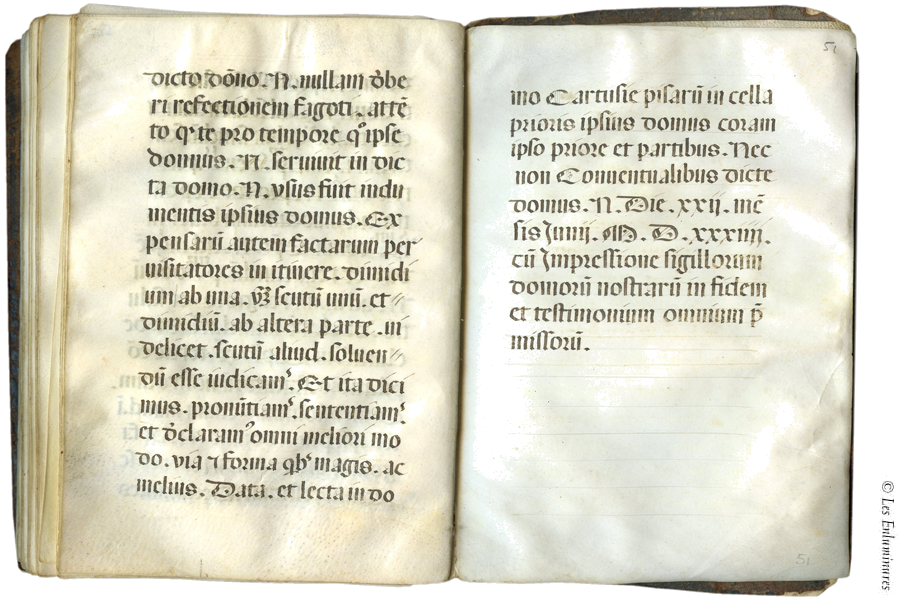 dicto dōno. N. nullam d̄be
ri refectionem fagoti. attē
to qͥ te pro tempore qͦ ipse
domus. N. seruiuit in dic
ta domo. N. vsus fuit indu
mentis ipsius domus. Ex
pensarū autem factarum per
uisitatores in itinere. dimidi
um ab una. vꝫ scutū unū. et
dimidiū. ab altera parte. ui
delicet. scutū aliud. soluen
dū esse iudicamꝰ. Et ita dici
mus. pronūtiamꝰ. sententiamꝰ.
et d̄claramꝰ omni meliori mo
do. via ⁊ forma qbꝰ magis. ac
melius. Data. et lecta in do
51
mo Cartusie pisarū in cella
prioris ipsius domus coram
ipso priore et partibus. Nec
non Conuentualibus dicte
domus. N. Die. xxij. mē
sis Junij. M. D. xxxiiij.
cū Jmpressione sigillorum
domorū nostrarū in fidem
et testimonium omnium p̄
missorū.
51
© Les Enluminures